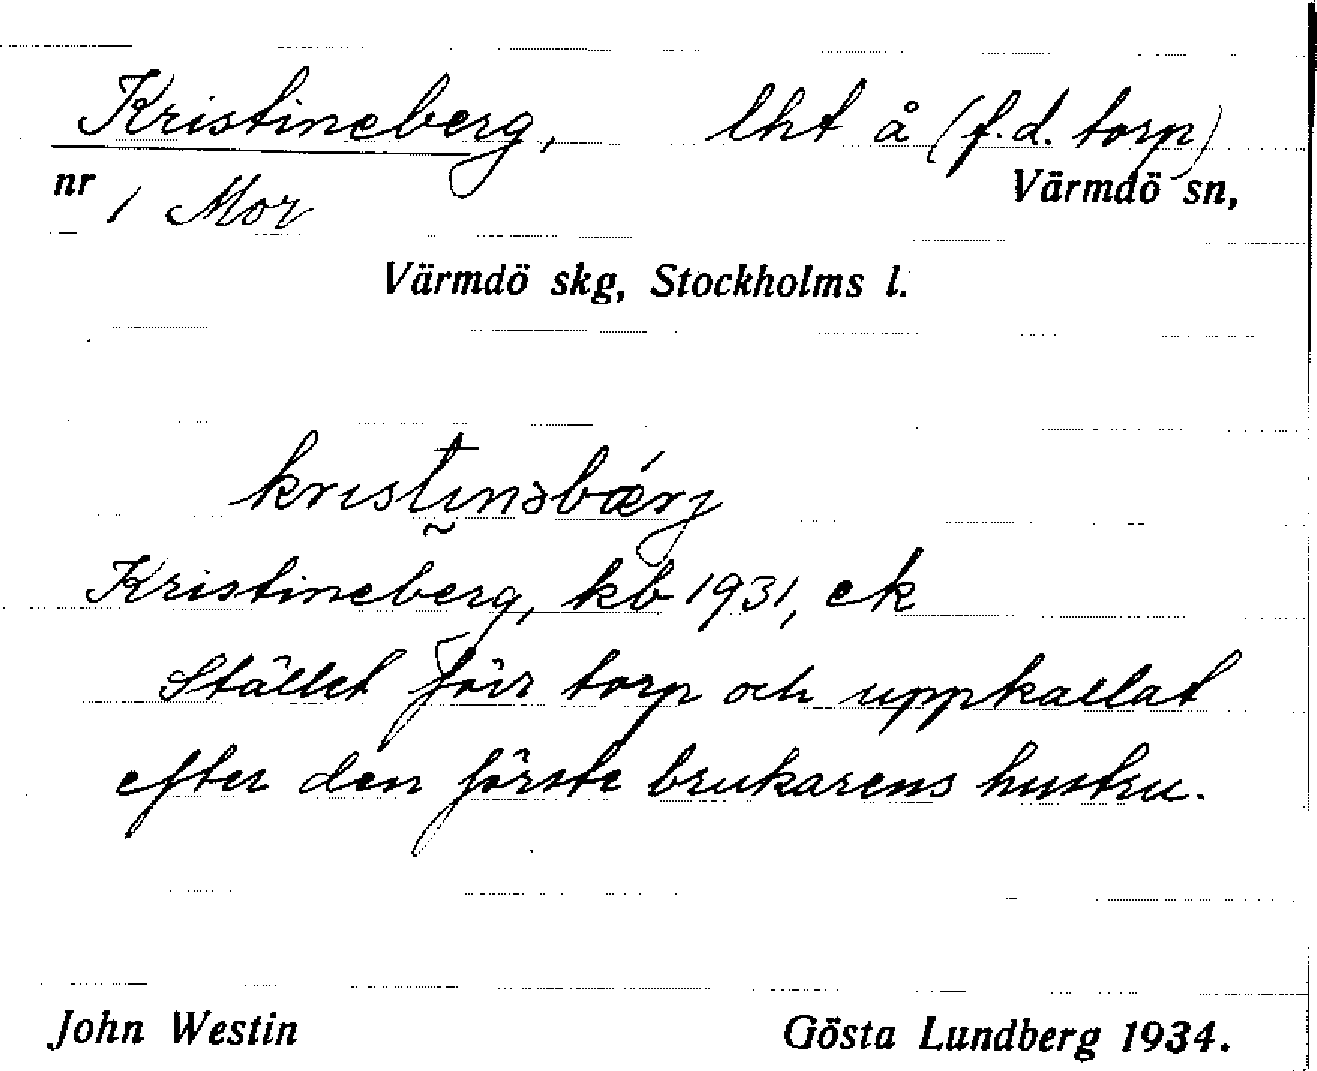 Kristineberg, lht å (f.d. torp)
nr 1 Mor Värmdö sn,
Värmdö skg, Stockholms l.
kristinəbǽrj
Kristineberg, kb 1931, ek
Stället förr torp och uppkallat
efter den förste brukarens hustru.
John Westin Gösta Lundberg 1934.